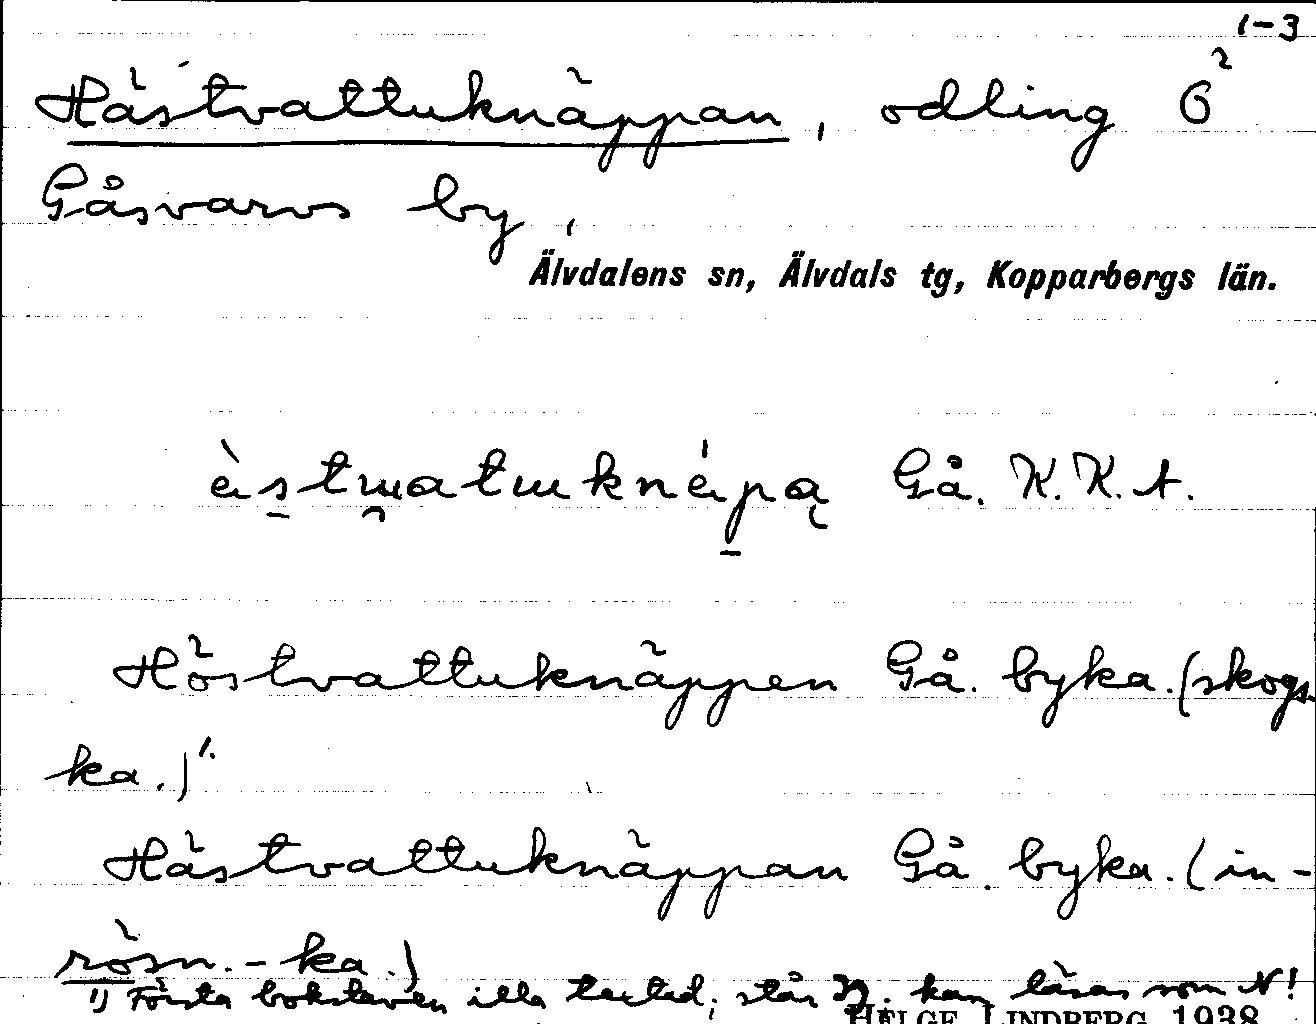 1-3
Hästvattuknäppan, odling 6²
Gåsvarvs by,
Älvdalens sn, Älvdals tg, Kopparbergs län.
Gå. K.K.A.
Höstvattuknäppen Gå. byka. (skogs-
ka.)¹·
Hästvattuknäppan Gå. byka. (in-
rösn.-ka.)
1) Första bokstaven illa textad; står kan läsas som N!
HELGE LINDBERG 1938